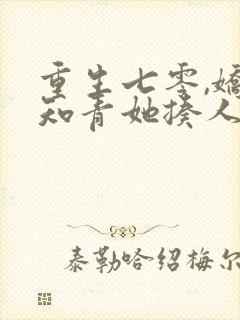 重生七零,娇
知青她揍人
泰勒哈绍梅尔